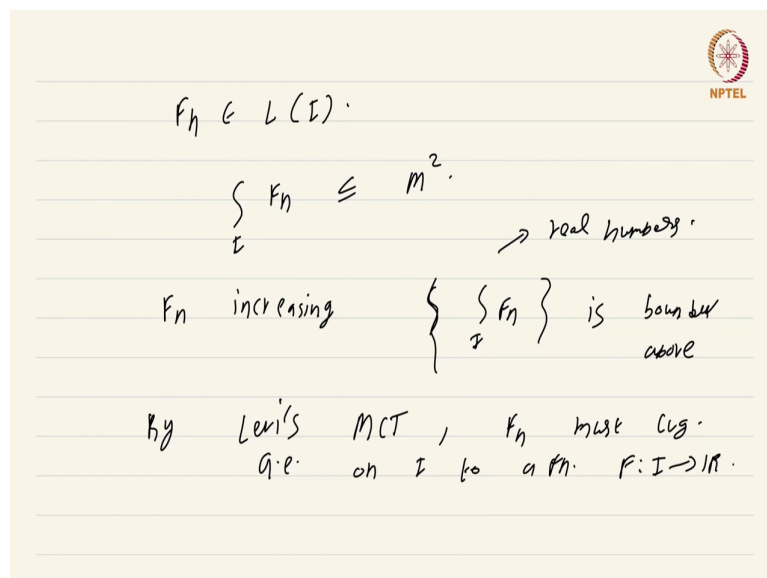 NPTEL
Fn ∈ L(I).
∫_I Fn ≤ M².
→ real numbers.
Fn increasing { ∫_I Fn } is bounded above
By Levi's MCT, Fn must cvg.
a.e. on I to a fn. F: I → ℝ.